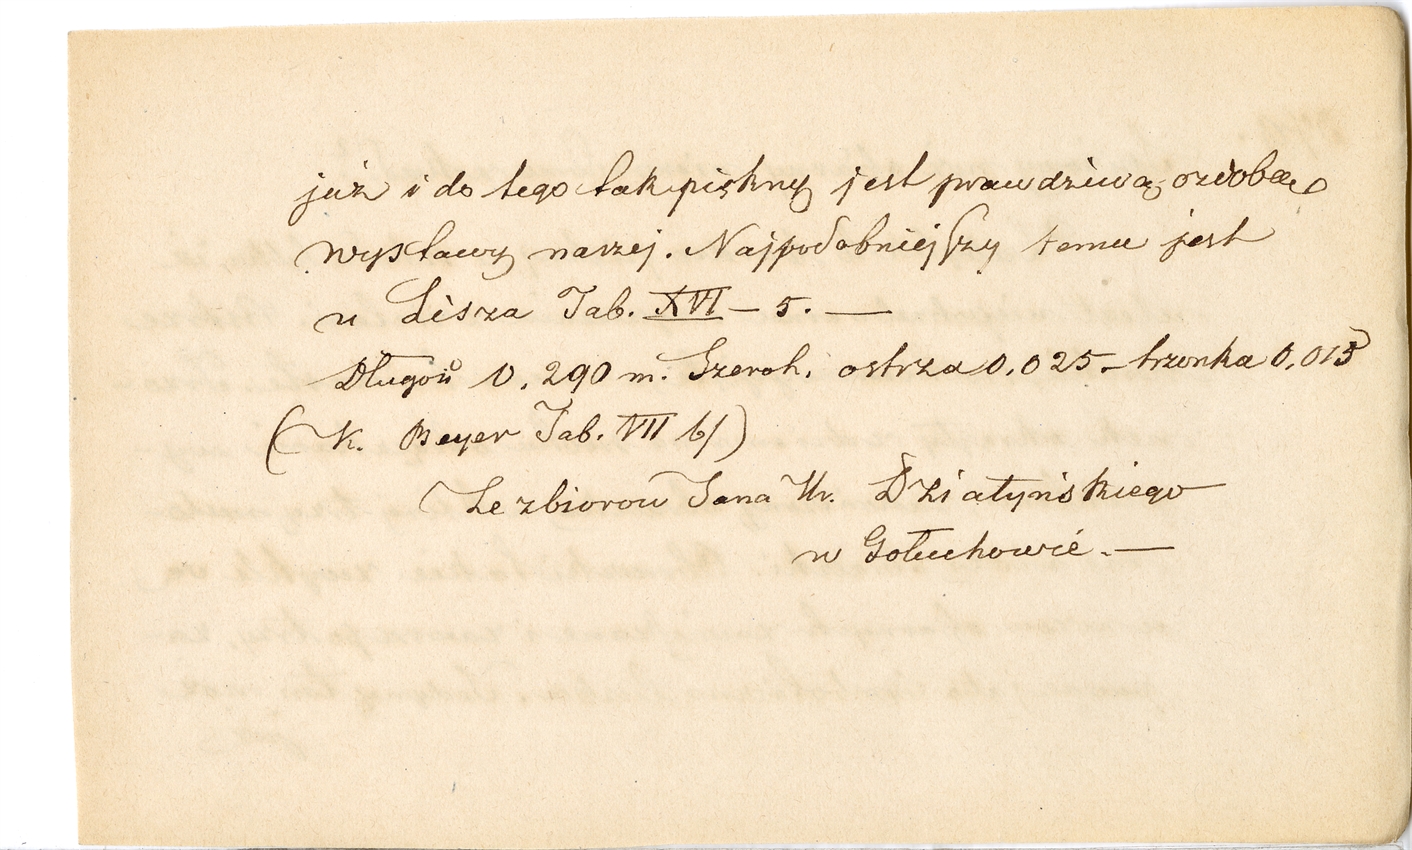 już i do tego tak piękny jest prawdziwą ozdobą
wystawy naszej. Najpodobniejszy temu jest
u Lisza Tab. XVI – 5. —
Długość 0,290 m. Szerok. ostrza 0,025 – trzonka 0,015
(K. Beyer Tab. VII b/)
Ze zbiorów Jana Hr. Działyńskiego
w Gołuchowie. —